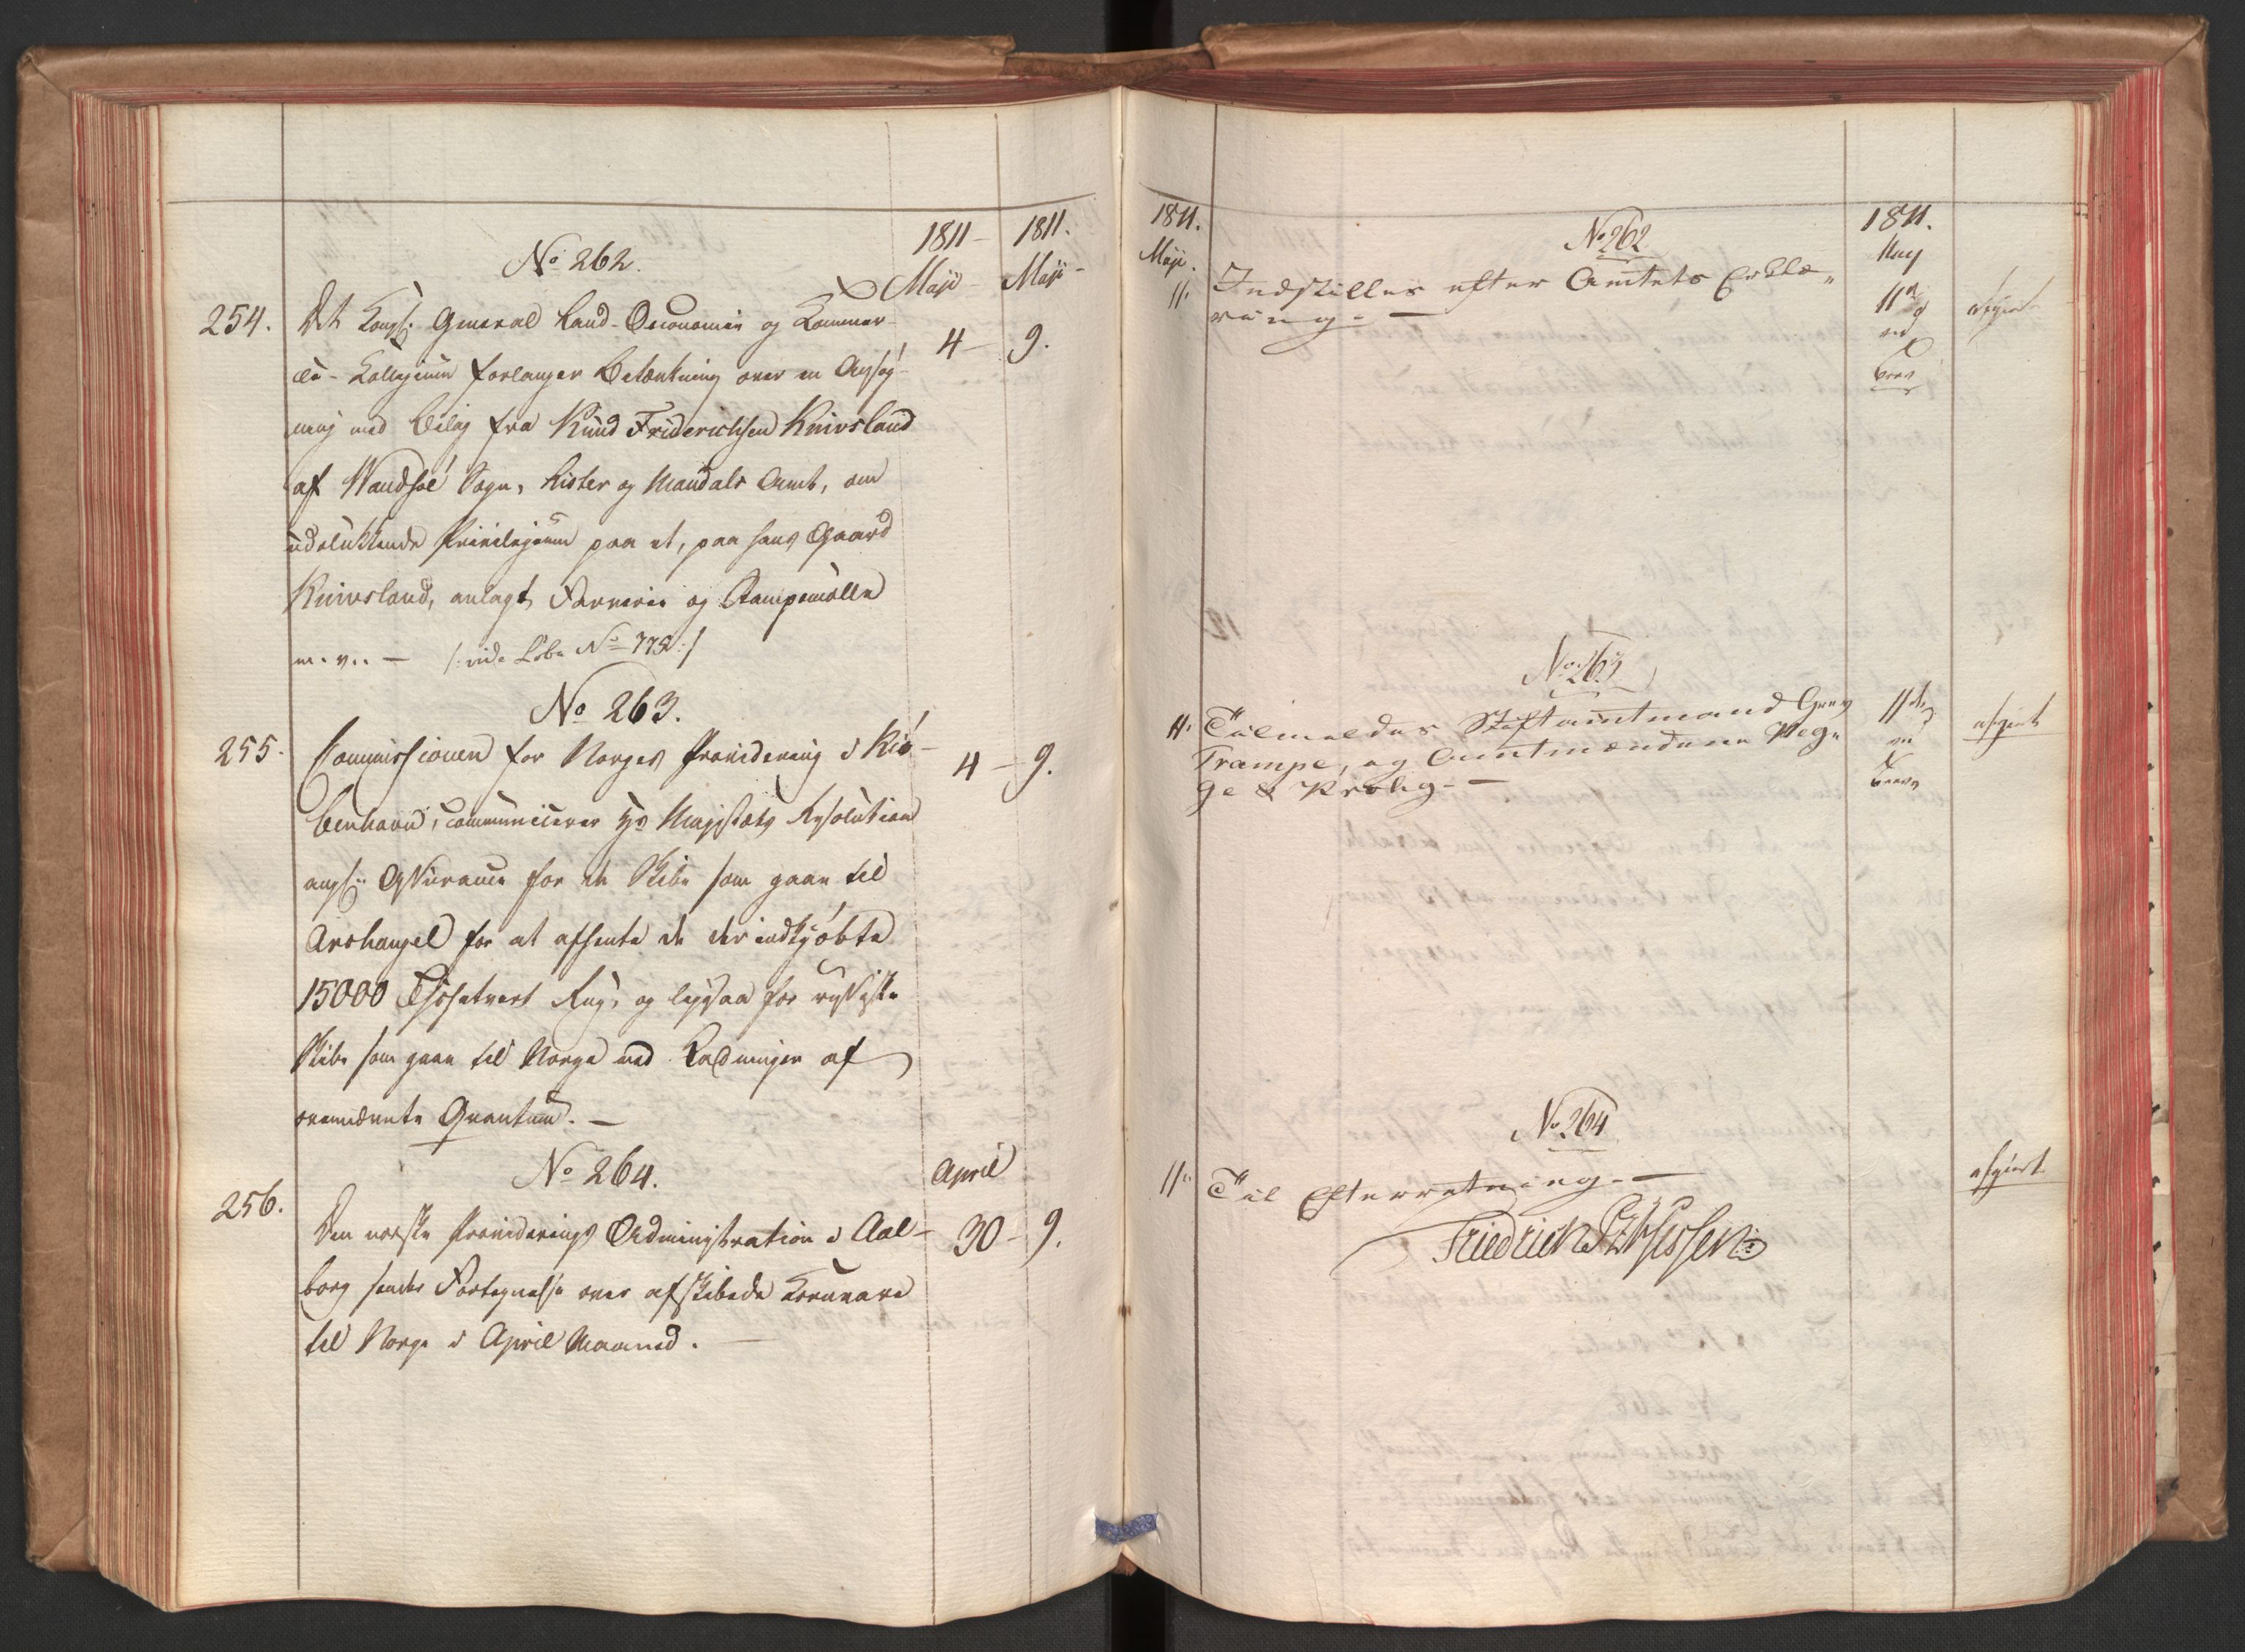 1811 1811.
No 262.
Maji Maji
254. Det Kongl. General Land-Oeconomie og Kommer-
4 9.
ce-Collegium forlanger Betænkning over en Ansøg-
ning med Bilag fra Knud Friderichsen Knivsland
af Wandsøe Sogn, Lister og Mandals Amt, om
udelukkende Privilegium paa et, paa hans Gaard
Knivsland, anlagt Farverie og Stampemølle
m. v. — /: vide Løbe No 775 :/
No 263.
255. Commissionen for Norges Providering i Kiø-
4 9.
benhavn, communicerer Hs Majestæts Resolution
angl. Assurance for de Skibe som gaae til
Archangel for at afhente de der indkjøbte
15000 Tschetvert Rug, og ligesaa for russiske
Skibe som gaae til Norge med Ladninger af
ovennævnte Qvantum. —
No 264.
April
256. Den norske Providerings Administration i Aal-
30 9.
borg sender Fortegnelse over afskibede Kornvare
til Norge i April Maaned. —
1811. 1811.
No 262
Maji. May
11. Indstilles efter Amtets Erklæ-
ring. —
11
ved
Brev
afgiort
No 263
11. Tilmeldes Stiftamtmand Grev
Trampe, og Amtmændene Weg-
ge & Krohg. —
11
ved
Breve
afgiort
No 264
11. Til Efterretning. —
afgiort
Friedrich